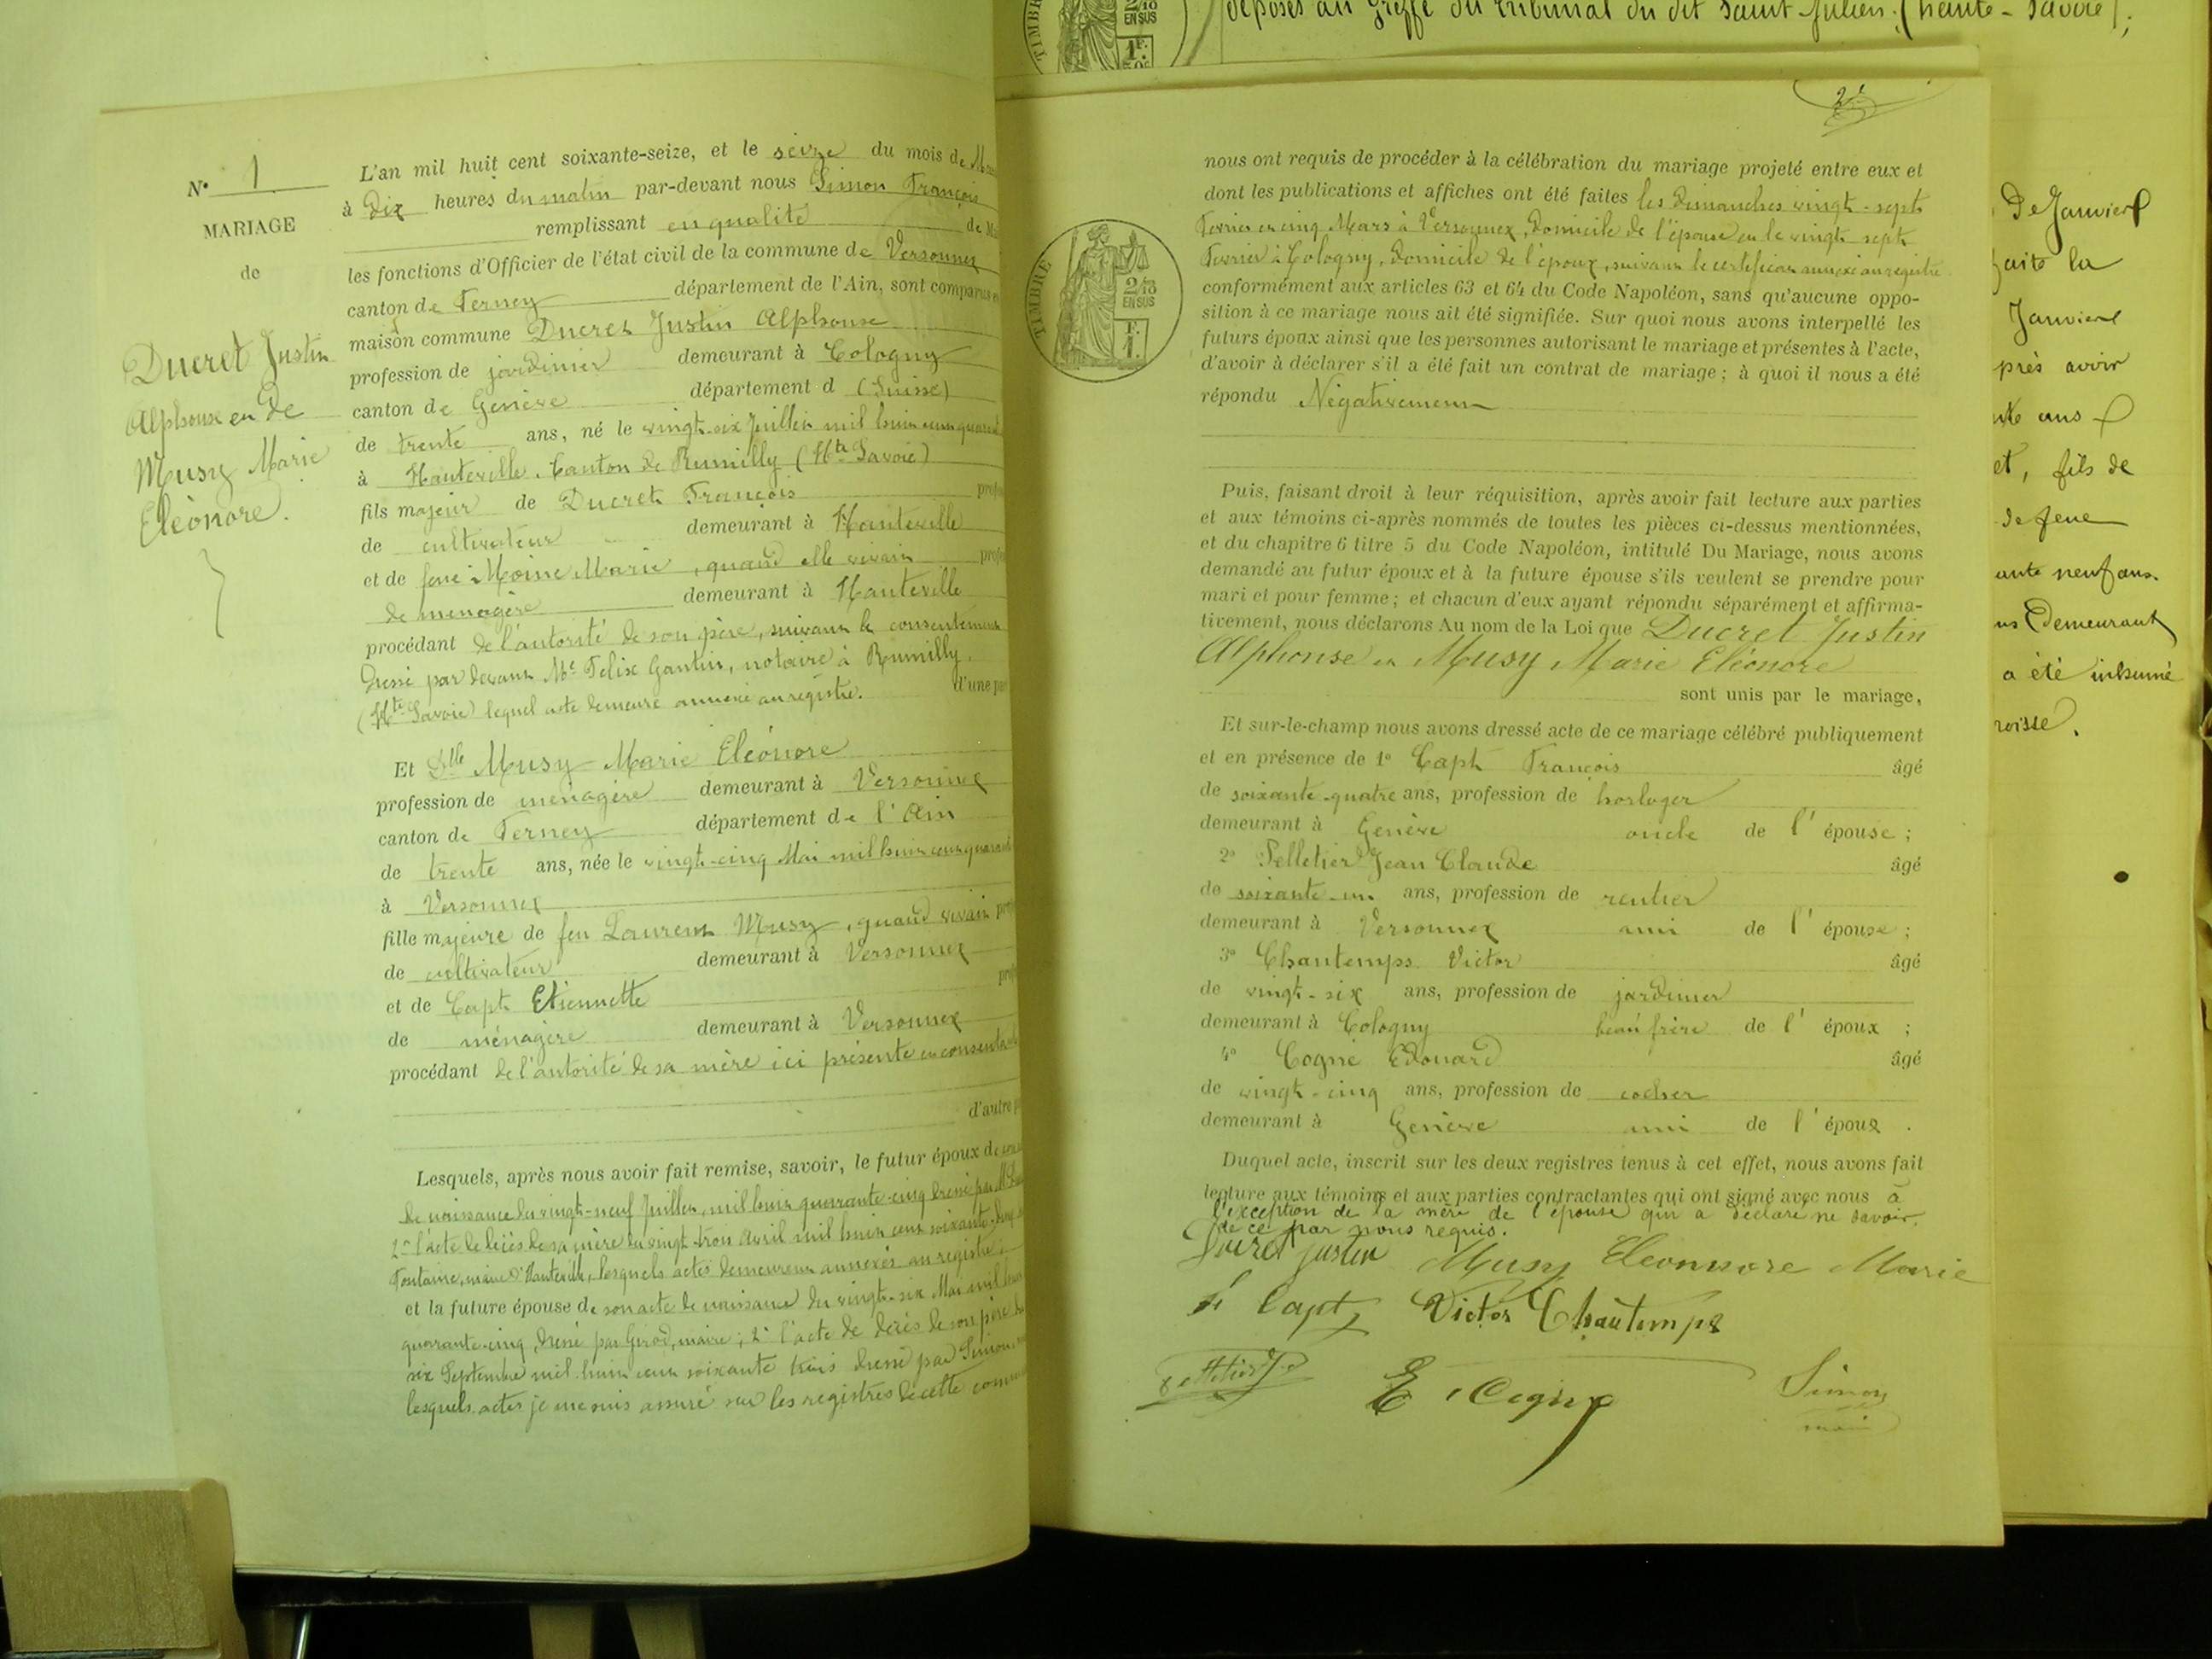 N° 1
MARIAGE
de
Ducret Justin
Alphonse et de
Musy Marie
Eléonore.
L'an mil huit cent soixante-seize, et le seize du mois de
à Dix heures du matin par-devant nous Simon François
remplissant en qualité de
les fonctions d'Officier de l'état civil de la commune de Versonnex
canton de Ferney département de l'Ain, sont comparus
maison commune Ducret Justin Alphonse
profession de jardinier demeurant à Cologny
canton de Genève département d (Suisse)
de trente ans, né le vingt-six Juillet mil huit cent
à Hauteville, Canton de Rumilly (Hte Savoie)
fils majeur de Ducret François
de cultivateur demeurant à Hauteville
et de feue Moine Marie, quand elle vivait
de ménagère demeurant à Hauteville
procédant de l'autorité de son père, suivant le consentement
Dressé par devant Me Felix Gantin, notaire à Rumilly,
(Hte Savoie) lequel acte demeure annexé au registre. d'une
Et Dlle Musy Marie Eléonore
profession de ménagère demeurant à Versonnex
canton de Ferney département de l'Ain
de trente ans, née le vingt-cinq Mai mil huit cent
à Versonnex
fille majeure de feu Laurent Musy, quand vivait
de cultivateur demeurant à Versonnex
et de Capt Etiennette
de ménagère demeurant à Versonnex
procédant de l'autorité de sa mère ici présente et
d'autre
Lesquels, après nous avoir fait remise, savoir, le futur époux de
de naissance du vingt-neuf Juillet, mil huit quarante-cinq dressé par
2° l'acte de décès de sa mère du vingt-trois Avril mil huit cent soixante
Fontaine, maire d'Hauteville, lesquels actes demeurent annexés au registre;
et la future épouse de son acte de naissance du vingt-six Mai mil
quarante-cinq, dressé par Girod, maire; 2° l'acte de décès de son père
six Septembre mil huit cent soixante trois dressé par Simon,
lesquels actes je me suis assuré sur les registres de cette
2e
TIMBRE
2/10
EN SUS
1F.
nous ont requis de procéder à la célébration du mariage projeté entre eux et
dont les publications et affiches ont été faites les Dimanches vingt-sept
Fevrier et cinq Mars à Versonnex, Domicile de l'épouse et le vingt-sept
Fevrier à Cologny, Domicile de l'époux, suivant le certificat annexé au registre
conformément aux articles 63 et 64 du Code Napoléon, sans qu'aucune oppo-
sition à ce mariage nous ait été signifiée. Sur quoi nous avons interpellé les
futurs époux ainsi que les personnes autorisant le mariage et présentes à l'acte,
d'avoir à déclarer s'il a été fait un contrat de mariage; à quoi il nous a été
répondu Négativement
Puis, faisant droit à leur réquisition, après avoir fait lecture aux parties
et aux témoins ci-après nommés de toutes les pièces ci-dessus mentionnées,
et du chapitre 6 titre 5 du Code Napoléon, intitulé Du Mariage, nous avons
demandé au futur époux et à la future épouse s'ils veulent se prendre pour
mari et pour femme; et chacun d'eux ayant répondu séparément et affirma-
tivement, nous déclarons Au nom de la Loi que Ducret Justin
Alphonse et Musy Marie Eléonore
sont unis par le mariage,
Et sur-le-champ nous avons dressé acte de ce mariage célébré publiquement
et en présence de 1° Capt François âgé
de soixante-quatre ans, profession de horloger
demeurant à Genève oncle de l'épouse;
2° Pelletier Jean Claude âgé
de soixante-un ans, profession de rentier
demeurant à Versonnex ami de l'épouse;
3° Chantemps Victor âgé
de vingt-six ans, profession de jardinier
demeurant à Cologny beau frère de l'époux;
4° Cogne Edouard âgé
de vingt-cinq ans, profession de cocher
demeurant à Genève ami de l'époux.
Duquel acte, inscrit sur les deux registres tenus à cet effet, nous avons fait
lecture aux témoins et aux parties contractantes qui ont signé avec nous à
l'exception de la mère de l'épouse qui a déclaré ne savoir.
de ce par nous requis.
Ducret Justin Musy Eleonnore Marie
f Capt Victor Chautemps
E Cogne Simon
maire
TIMBRE
2/10
EN SUS
1F.
déposés au Greffe du tribunal du dit Saint-Julien, (haute-Savoie);
De Janvier
faite la
Janvier
près avoir
ans
et, fils de
de feue
ante neuf ans.
Demeurant
a été inhumé
roisse.